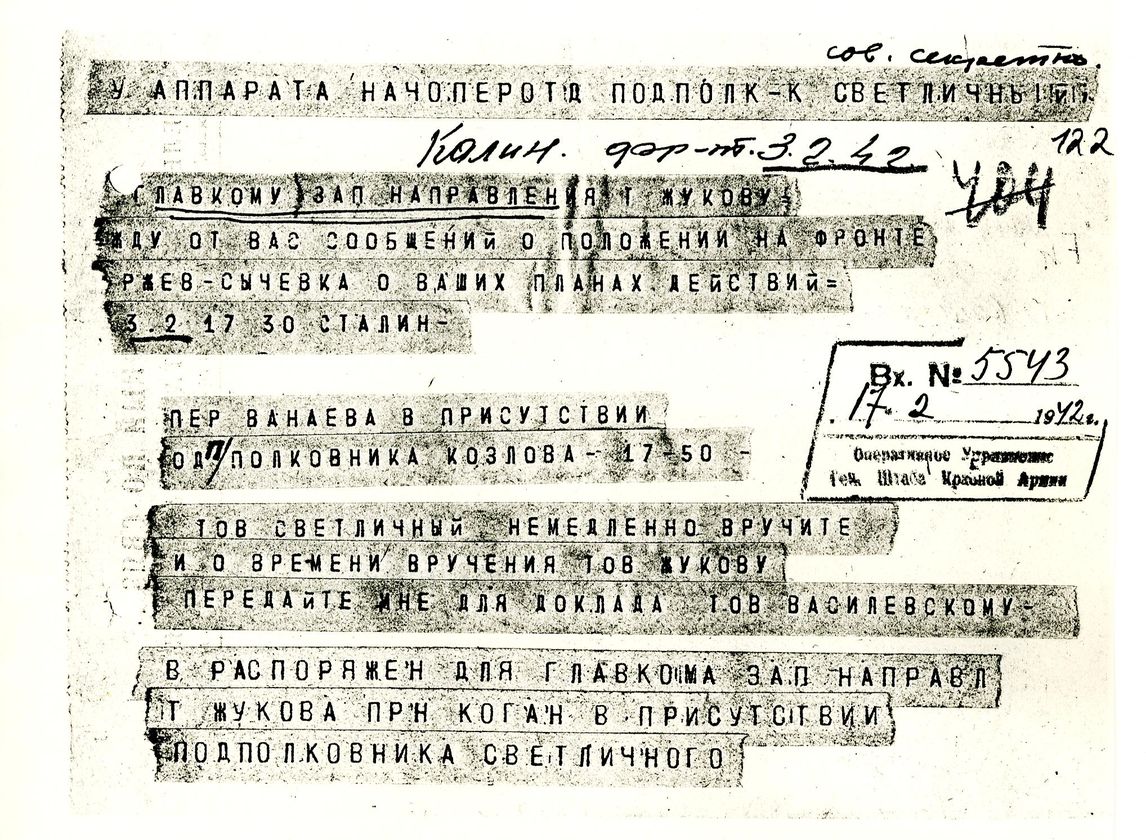 сов. секретно.
У АППАРАТА НАЧОПЕРОТД ПОДПОЛК-К СВЕТЛИЧНЫЙ
Калин. фр-т. 3.2.42
122
404
ГЛАВКОМУ ЗАП НАПРАВЛЕНИЯ Т ЖУКОВУ=
ЖДУ ОТ ВАС СООБЩЕНИЙ О ПОЛОЖЕНИИ НА ФРОНТЕ
РЖЕВ-СЫЧЕВКА О ВАШИХ ПЛАНАХ ДЕЙСТВИЙ=
3.2 17 30 СТАЛИН-
Вх. № 5543
17. 2 1942г.
Оперативное Управление
Ген. Штаба Красной Армии
ПЕР ВАНАЕВА В ПРИСУТСТВИИ
ОД П/ПОЛКОВНИКА КОЗЛОВА- 17-50 -
ТОВ СВЕТЛИЧНЫЙ НЕМЕДЛЕННО ВРУЧИТЕ
И О ВРЕМЕНИ ВРУЧЕНИЯ ТОВ ЖУКОВУ
ПЕРЕДАЙТЕ МНЕ ДЛЯ ДОКЛАДА ТОВ ВАСИЛЕВСКОМУ-
В РАСПОРЯЖЕН ДЛЯ ГЛАВКОМА ЗАП НАПРАВЛ
Т ЖУКОВА ПРН КОГАН В ПРИСУТСТВИИ
ПОДПОЛКОВНИКА СВЕТЛИЧНОГО